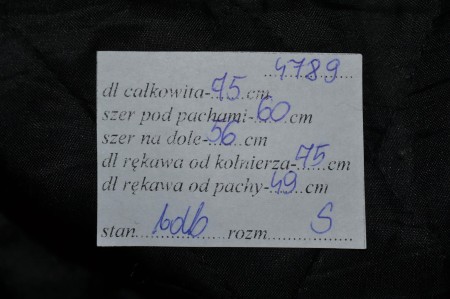 4789
dl całkowita-75 cm
szer pod pachami-60 cm
szer na dole-56 cm
dl rękawa od kołnierza-75 cm
dl rękawa od pachy-49 cm
stan bdb rozm S